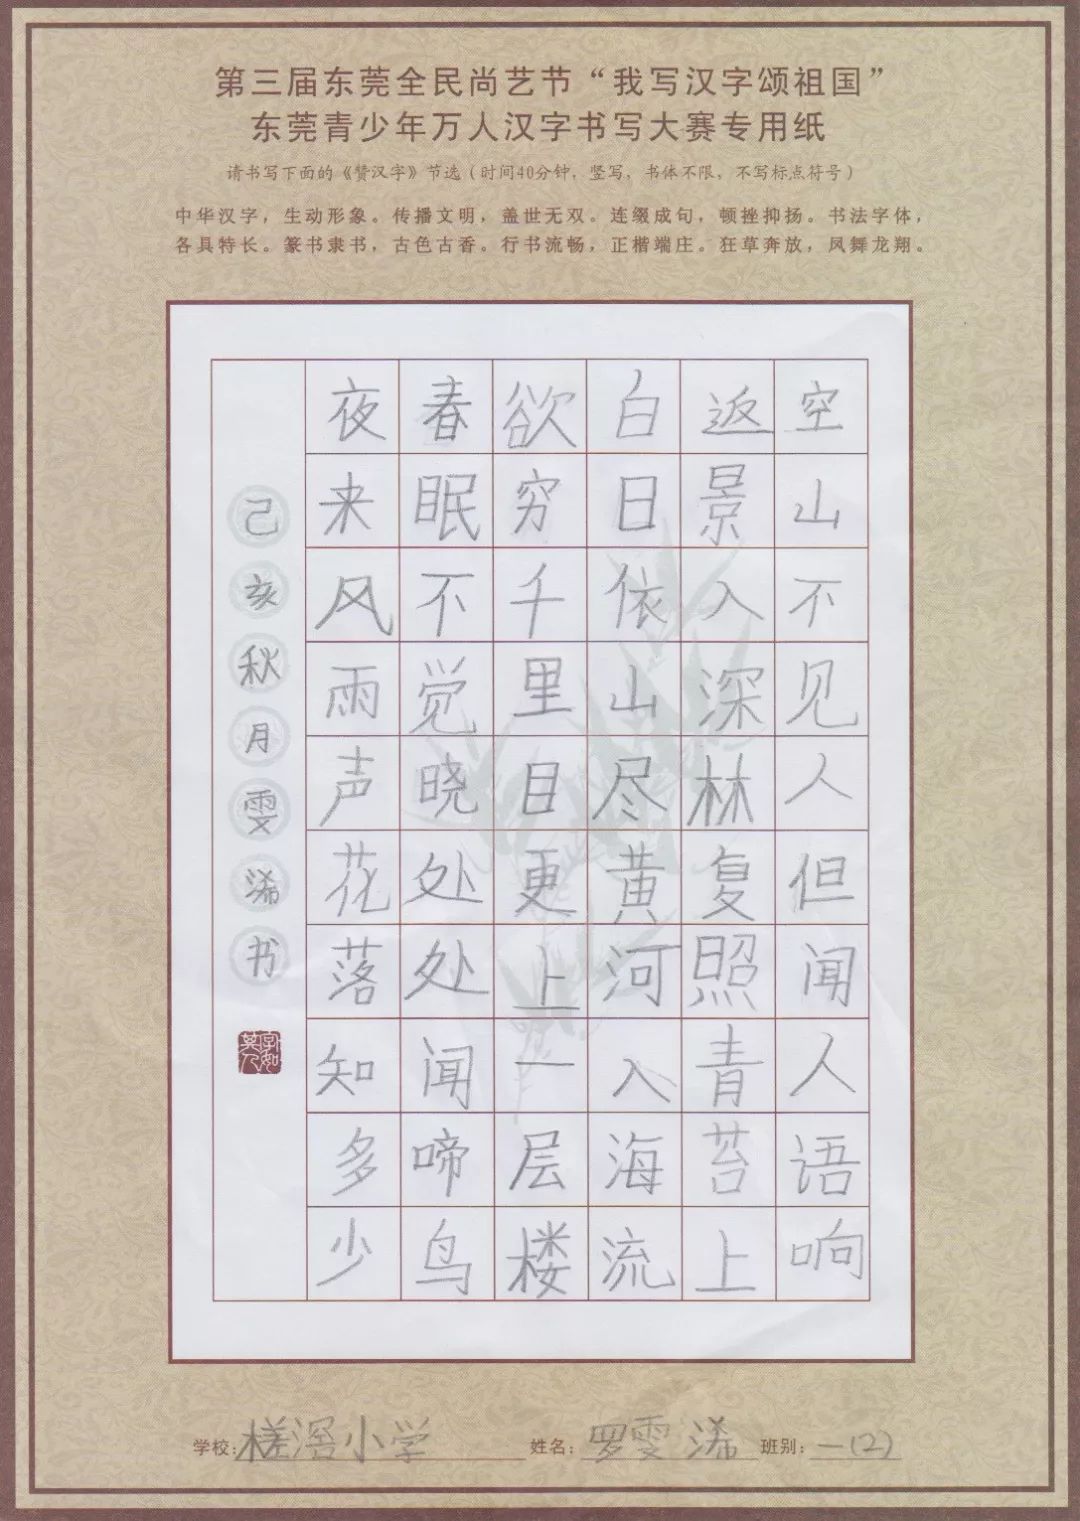 第三届东莞全民尚艺节“我写汉字颂祖国”
东莞青少年万人汉字书写大赛专用纸
请书写下面的《赞汉字》节选（时间40分钟，竖写，书体不限，不写标点符号）
中华汉字，生动形象。传播文明，盖世无双。连缀成句，顿挫抑扬。书法字体，
各具特长。篆书隶书，古色古香。行书流畅，正楷端庄。狂草奔放，凤舞龙翔。
空山不见人但闻人语响
返景入深林复照青苔上
白日依山尽黄河入海流
欲穷千里目更上一层楼
春眠不觉晓处处闻啼鸟
夜来风雨声花落知多少
己亥秋月雯浠书
字如其人
学校：槎滘小学 姓名：罗雯浠 班别：一（2）